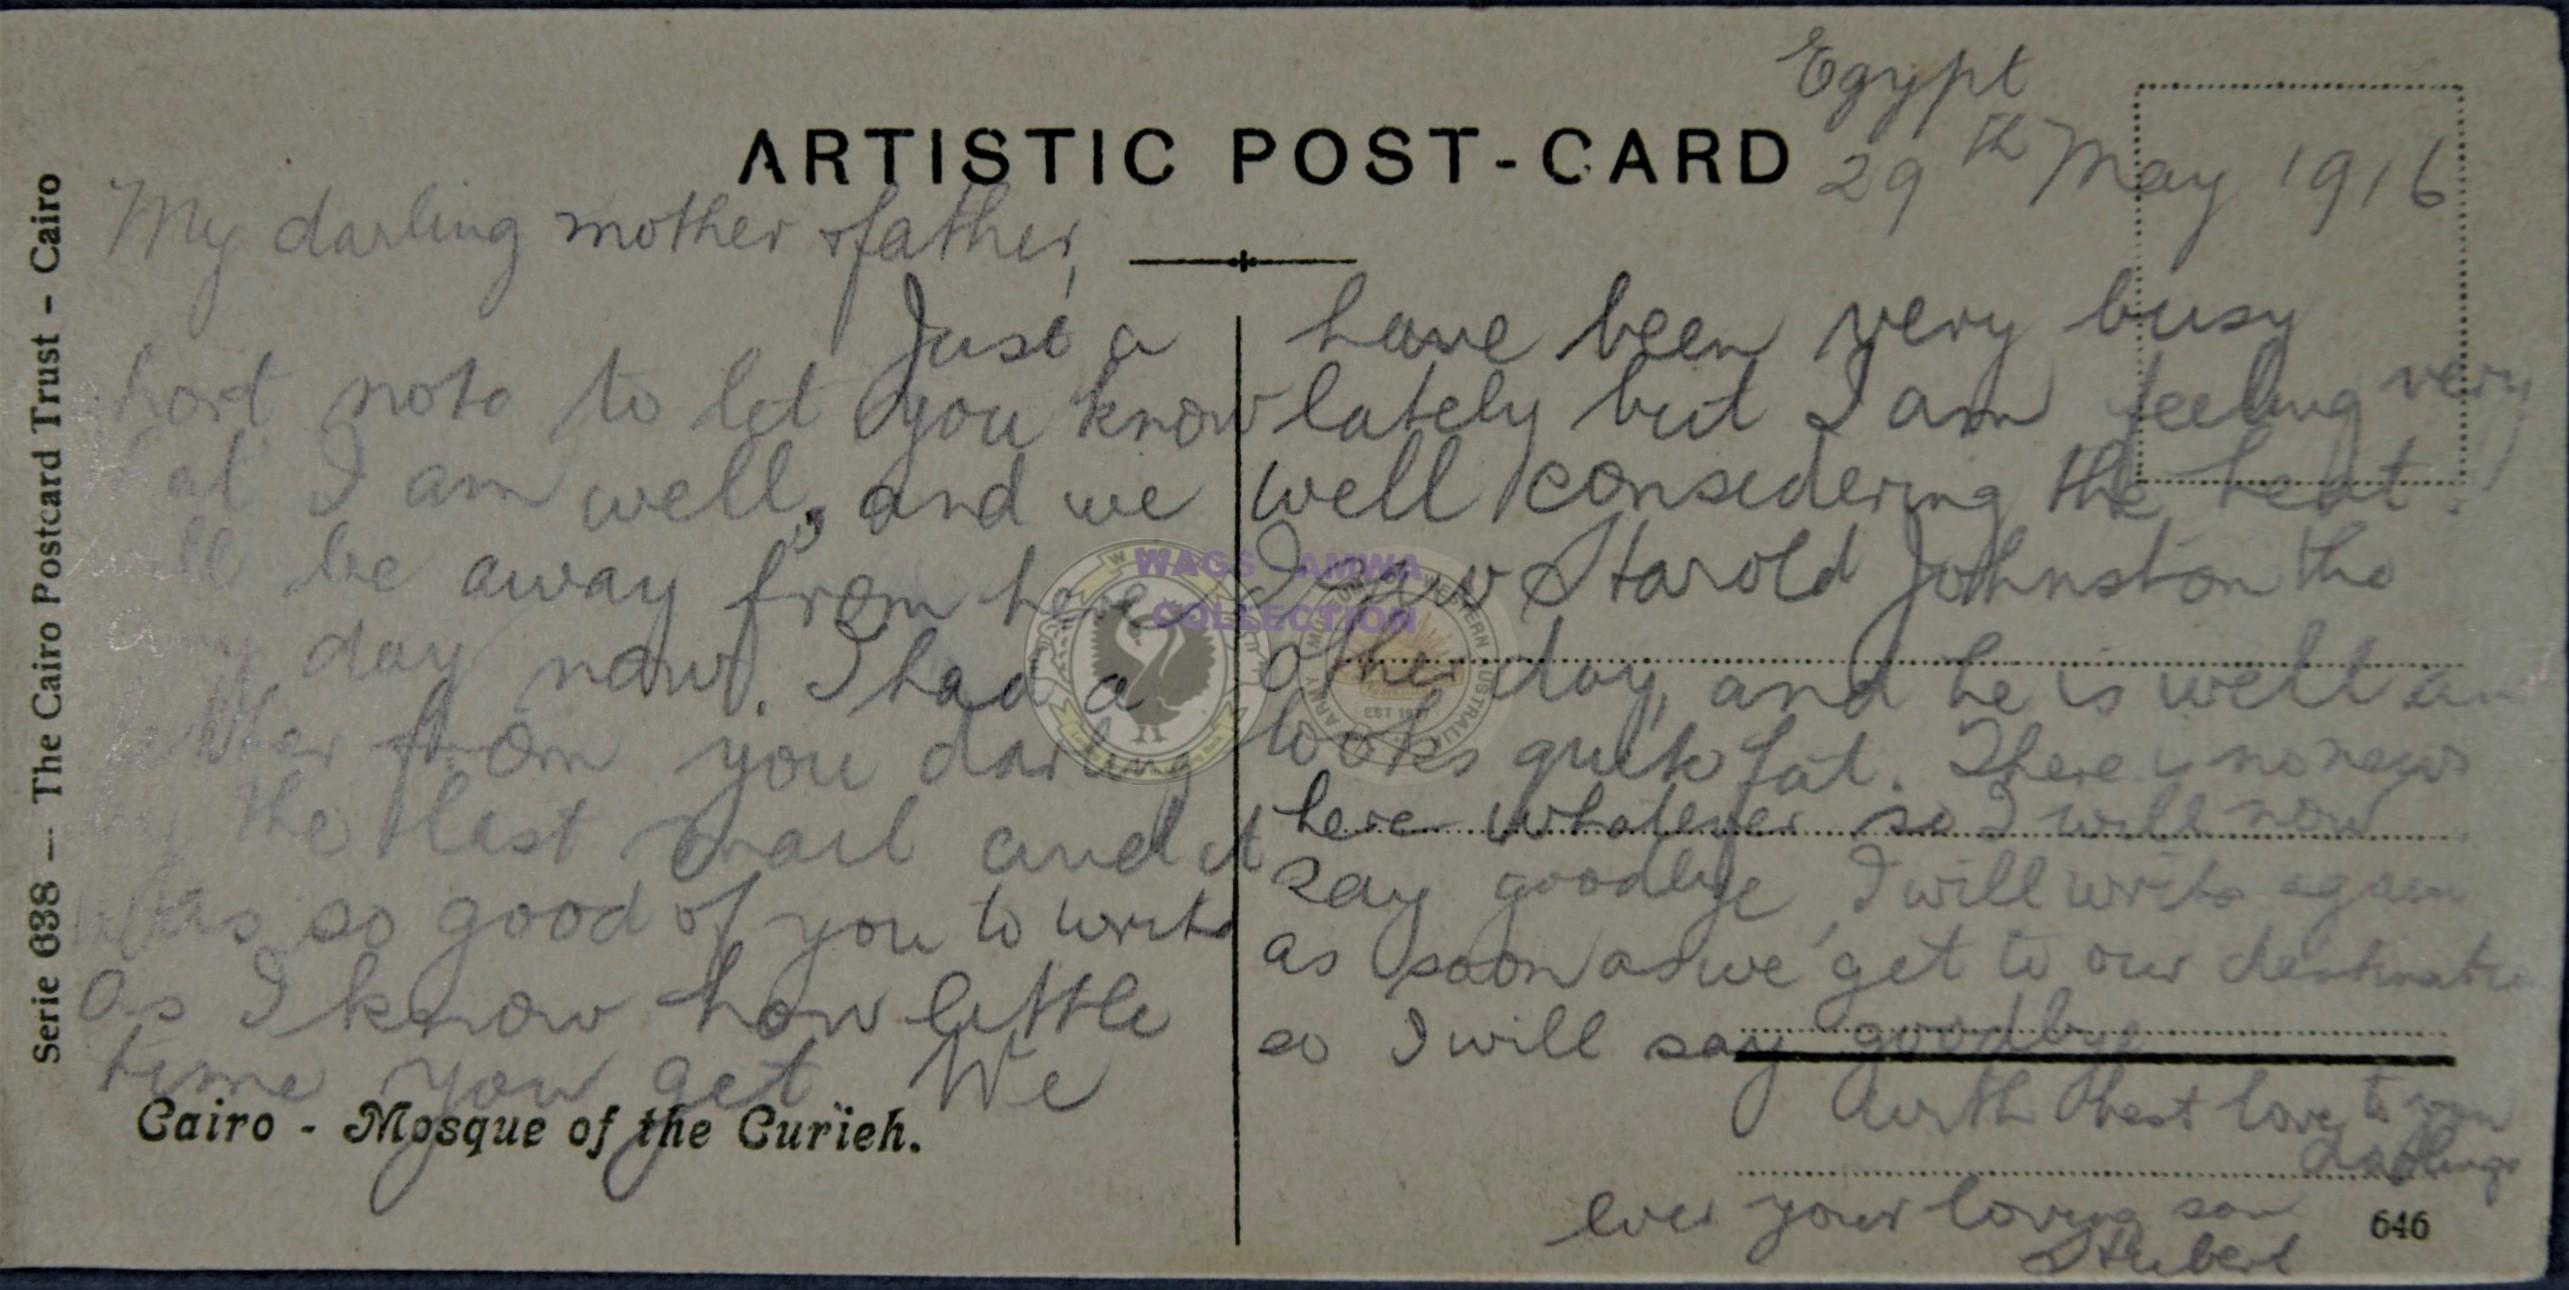 Egypt
ARTISTIC POST-CARD
29th May 1916
My darling mother & father,
Just a
short note to let you know
that I am well, and we
will be away from here
any day now. I had a
letter from you darling
by the last mail and it
was so good of you to write
as I know how little
time you get We
have been very busy
lately but I am feeling very
well considering the heat.
I saw Harold Johnston the
other day, and he is well an
looks quite fat. There is no news
here whatever so I will now
say goodbye, I will write again
as soon as we get to our destinatio
so I will say goodbye
with best love to you
darlings
ever your loving son
Hubert
Cairo - Mosque of the Curïeh.
646
Serie 638 — The Cairo Postcard Trust - Cairo
WAGS AMWA
COLLECTION
ARMY MUSEUM OF WESTERN AUSTRALIA
EST 1977